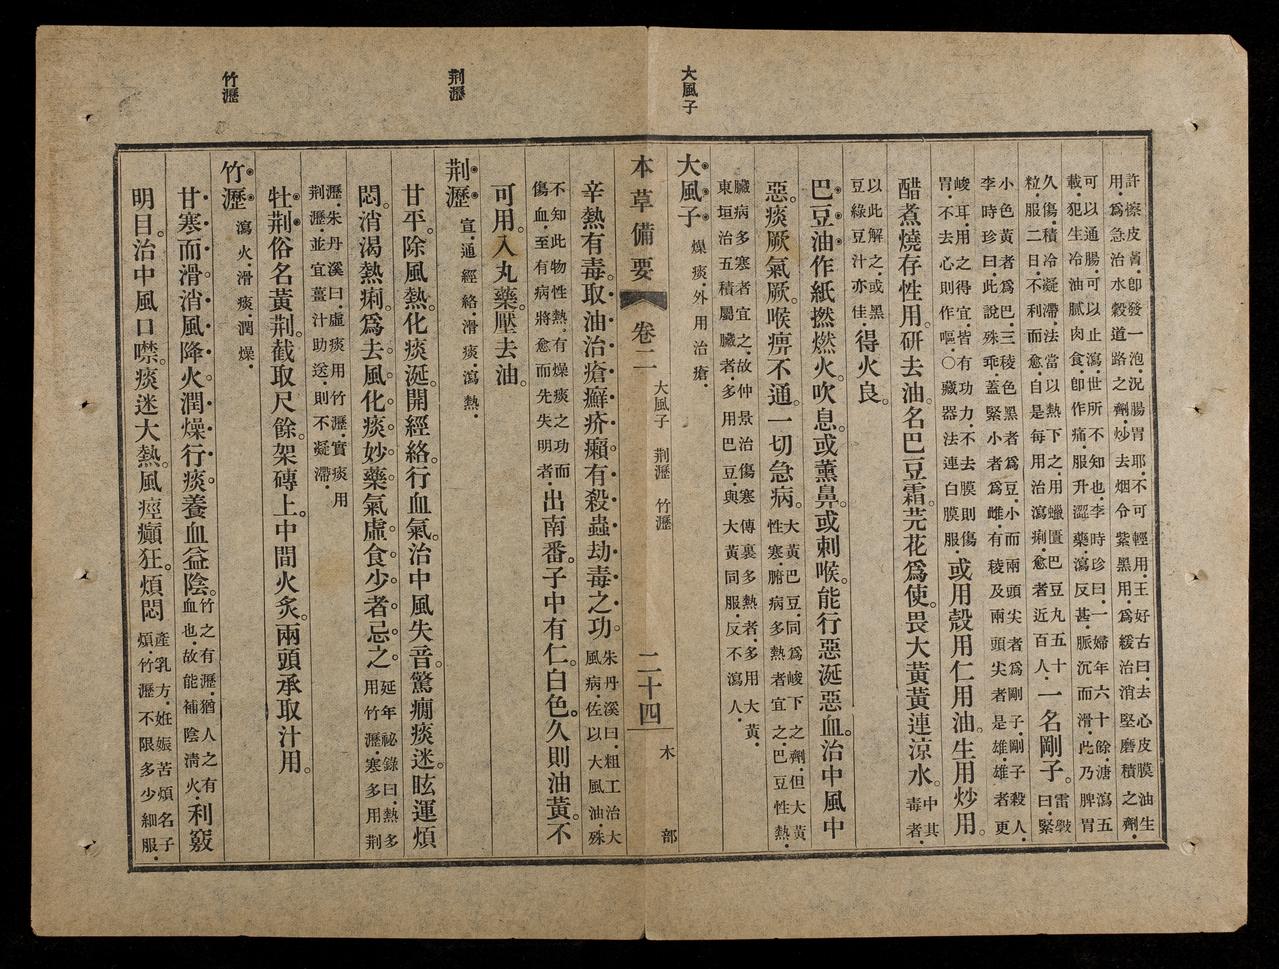 大風子
荆瀝
竹瀝
許擦皮膚.卽發一泡.況腸胃耶.不可輕用.王好古曰.去心皮膜油生
用.爲急治水穀道路之劑.炒去烟令紫黑用.爲緩治消堅磨積之劑.
可以通腸.可以止瀉.世所不知也.李時珍曰.一婦年六十餘.溏瀉五
載.犯生冷油膩肉食.卽作痛.服升澀藥.瀉反甚.脈沉而滑.此乃脾胃
久傷.積冷凝滯.法當以熱下之.用蠟匱巴豆丸五十
粒.服二日.不利而愈.自是每用治瀉痢.愈者近百人.一名剛子。雷斅
曰.緊
小色黃者爲巴.三稜色黑者爲豆.小而兩頭尖者爲剛子.剛子殺人.
李時珍曰.此說殊乖.蓋緊小者爲雌.有稜及兩頭尖者是雄.雄者更
峻耳.用之得宜.皆有功力.不去膜則傷
胃.不去心則作嘔.○藏器法.連白膜服.或用殼用仁用油。生用炒用。
醋煮燒存性用。研去油。名巴豆霜。芫花爲使。畏大黃黃連涼水。中其
毒者.
以此解之.或黑
豆綠豆汁亦佳.得火良。
巴豆油作紙撚燃火。吹息。或薰鼻。或刺喉。能行惡涎惡血。治中風中
惡。痰厥氣厥。喉痹不通。一切急病。大黃巴豆.同爲峻下之劑.但大黃
性寒.腑病多熱者宜之.巴豆性熱.
臟病多寒者宜之.故仲景治傷寒傳裏多熱者.多用大黃.
東垣治五積屬臟者.多用巴豆.與大黃同服.反不瀉人.
大風子 燥痰.外用治瘡.
本草備要 卷二 大風子 荆瀝 竹瀝 二十四 木部
辛熱有毒。取油治瘡癬疥癩。有殺蟲劫毒之功。朱丹溪曰.粗工治大
風病.佐以大風油.殊
不知此物性熱.有燥痰之功而
傷血.至有病將愈而先失明者.出南番。子中有仁。白色。久則油黃。不
可用。入丸藥。壓去油。
荆瀝 宣.通經絡.滑痰瀉熱.
甘平。除風熱。化痰涎。開經絡。行血氣。治中風失音。驚癇痰迷。眩運煩
悶。消渴熱痢。爲去風化痰妙藥。氣虛食少者忌之。延年祕錄曰.熱多
用竹瀝.寒多用荆
瀝.朱丹溪曰.虛痰用竹瀝.實痰用
荆瀝.並宜薑汁助送.則不凝滯.
牡荆俗名黃荆。截取尺餘。架磚上。中間火炙。兩頭承取汁用。
竹瀝 瀉火.滑痰.潤燥.
甘寒而滑。消風降火。潤燥行痰。養血益陰。竹之有瀝.猶人之有
血也.故能補陰淸火.利竅
明目。治中風口噤。痰迷大熱。風痙癲狂。煩悶 產乳方.姙娠苦煩.名子
煩.竹瀝不限多少.細服.